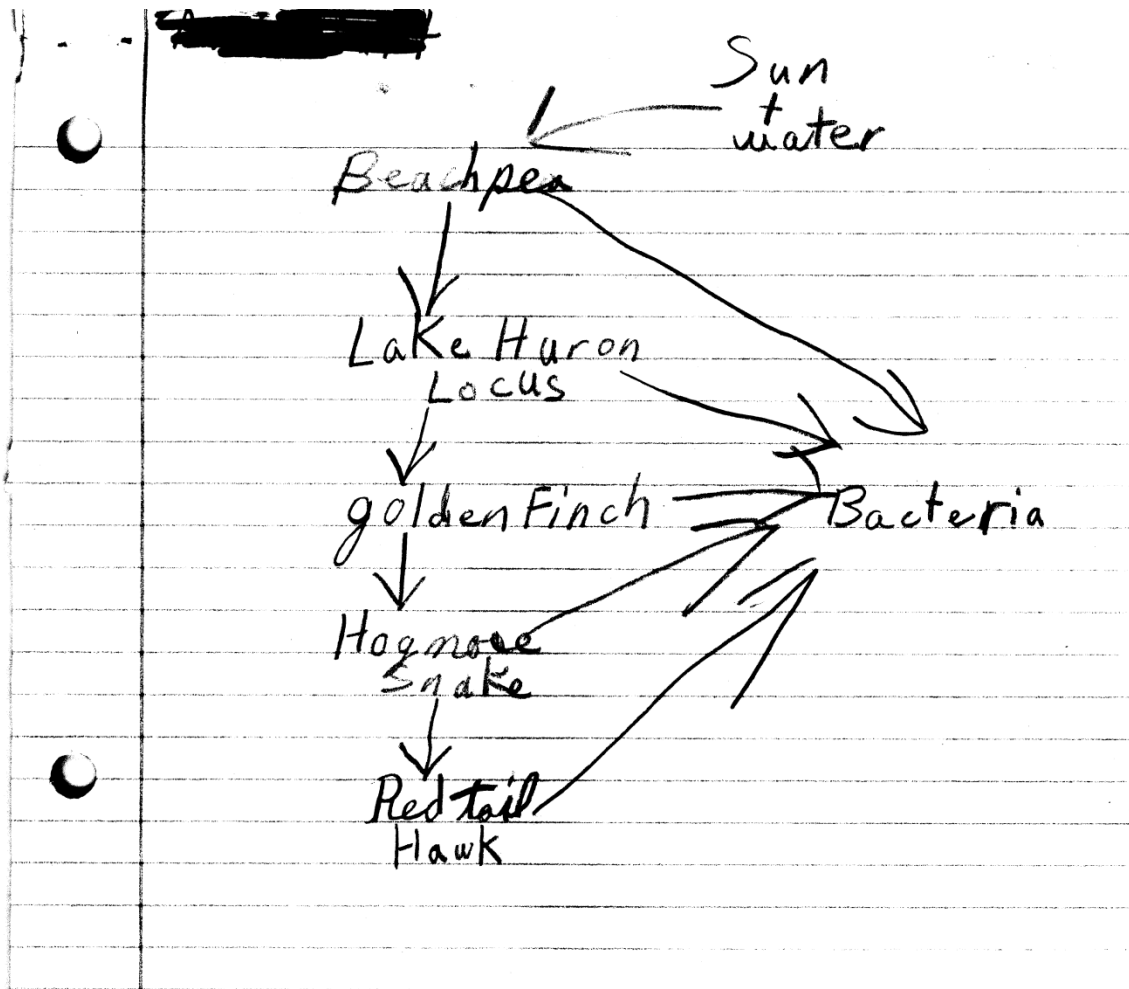 Sun
+
water
Beachpea
Lake Huron
Locus
golden Finch
Bacteria
Hognose
Snake
Red tail
Hawk